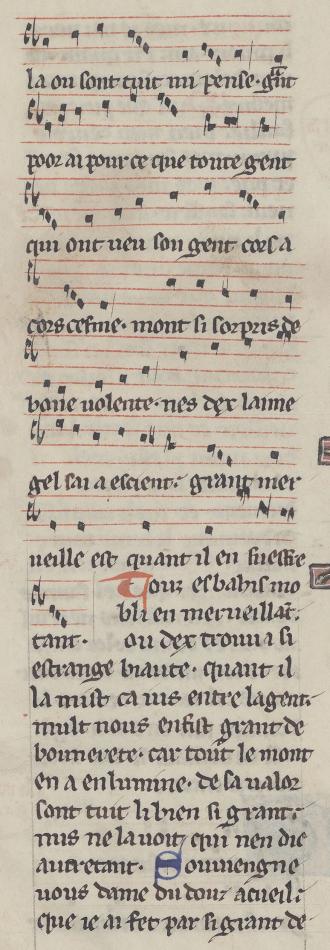 la ou sont tuit mi pense. grãt
poor ai pour ce que toute gent
qui ont ueu son gent cors a
cors cesme. mont si sorpris de
bone uolente. nes dex laime
gel sai a escient. grant mer
ueille est quant il en
Touz esbahis mo
bli en merueillãt.
tant. ou dex trouua si
estrange biaute. quant il
la mist ca ius entre la gent.
mult nous enfist grant de
bonnerete. car tout le mont
en a enlumine. de sa ualor
sont tuit li bien si grant.
nus ne la uoit qui nen die
autretant. Souuiengne
uous dame du douz acueil.
que ie ai fet par si grant de